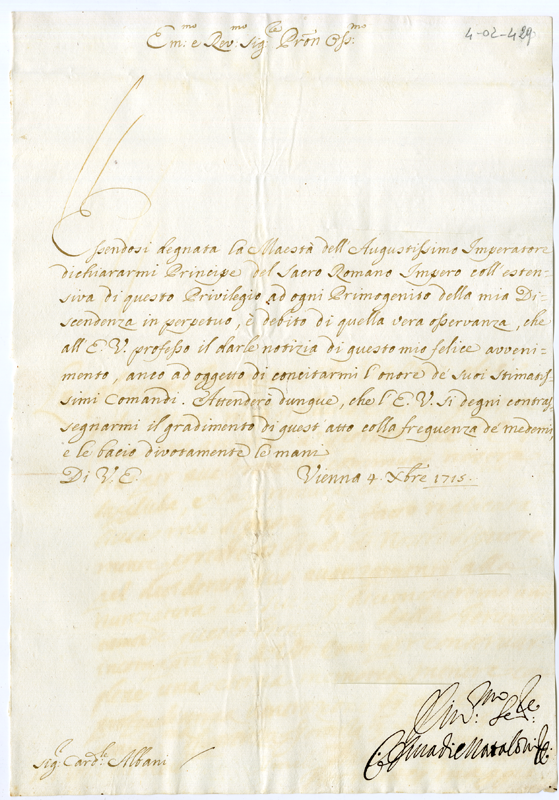 4-02-429
Em:mo e Rev:mo Sig:re Prõn Oss:mo
Essendosi degnata la Maestà dell'Augustissimo Imperatore
dichiararmi Principe del Sacro Romano Impero coll'esten-
siva di questo Privilegio ad ogni Primogenito della mia Di-
scendenza in perpetuo, è debito di quella vera osservanza, che
all'E. V. professo il darle notizia di questo mio felice avveni-
mento, anco ad oggetto di concitarmi l'onore de' suoi stimatis-
simi Comandi. Attenderò dunque, che l'E. V. si degni contras-
segnarmi il gradimento di quest'atto colla frequenza de' medemi
e le bacio divotamente le mani
Di V. E. Vienna 4. Xbre 1715.
Sig:r Card:le Albani